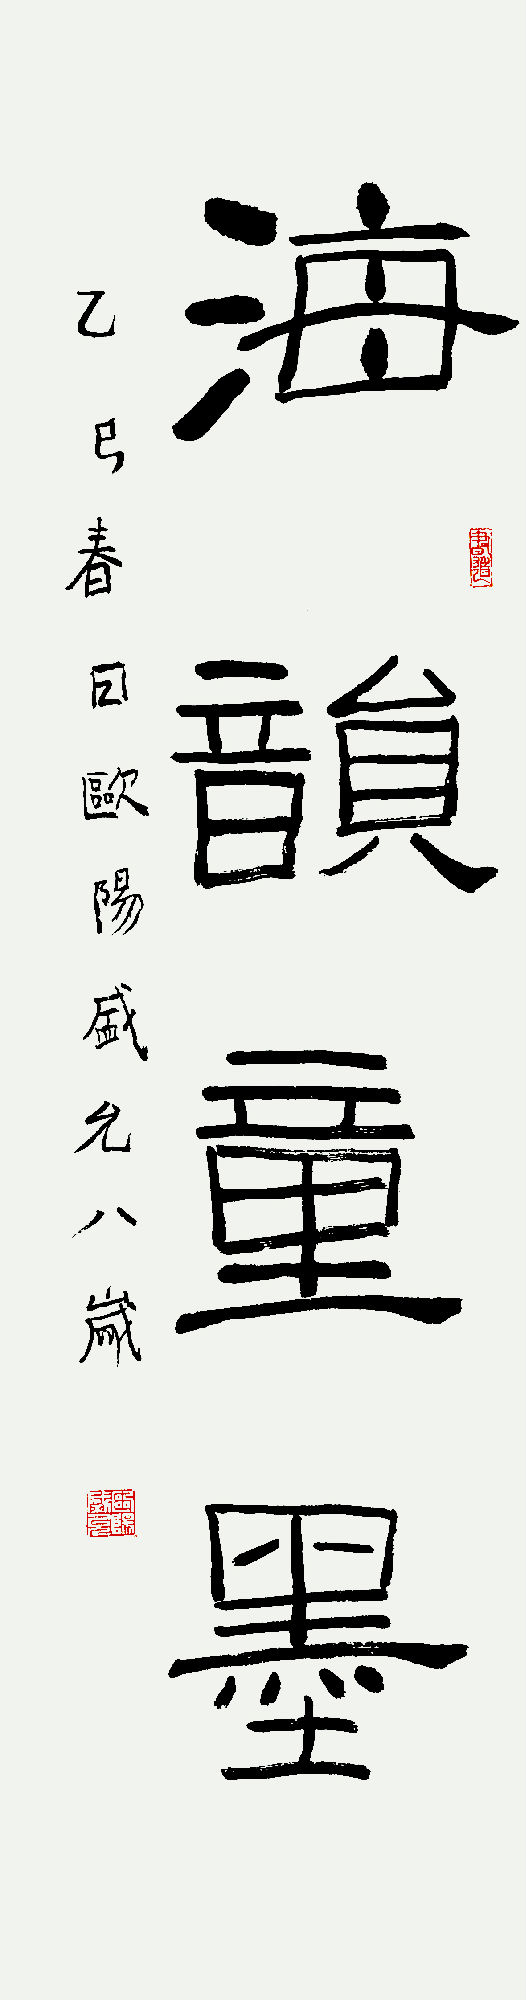 海韻童墨
乙巳春日歐陽盛允八歲